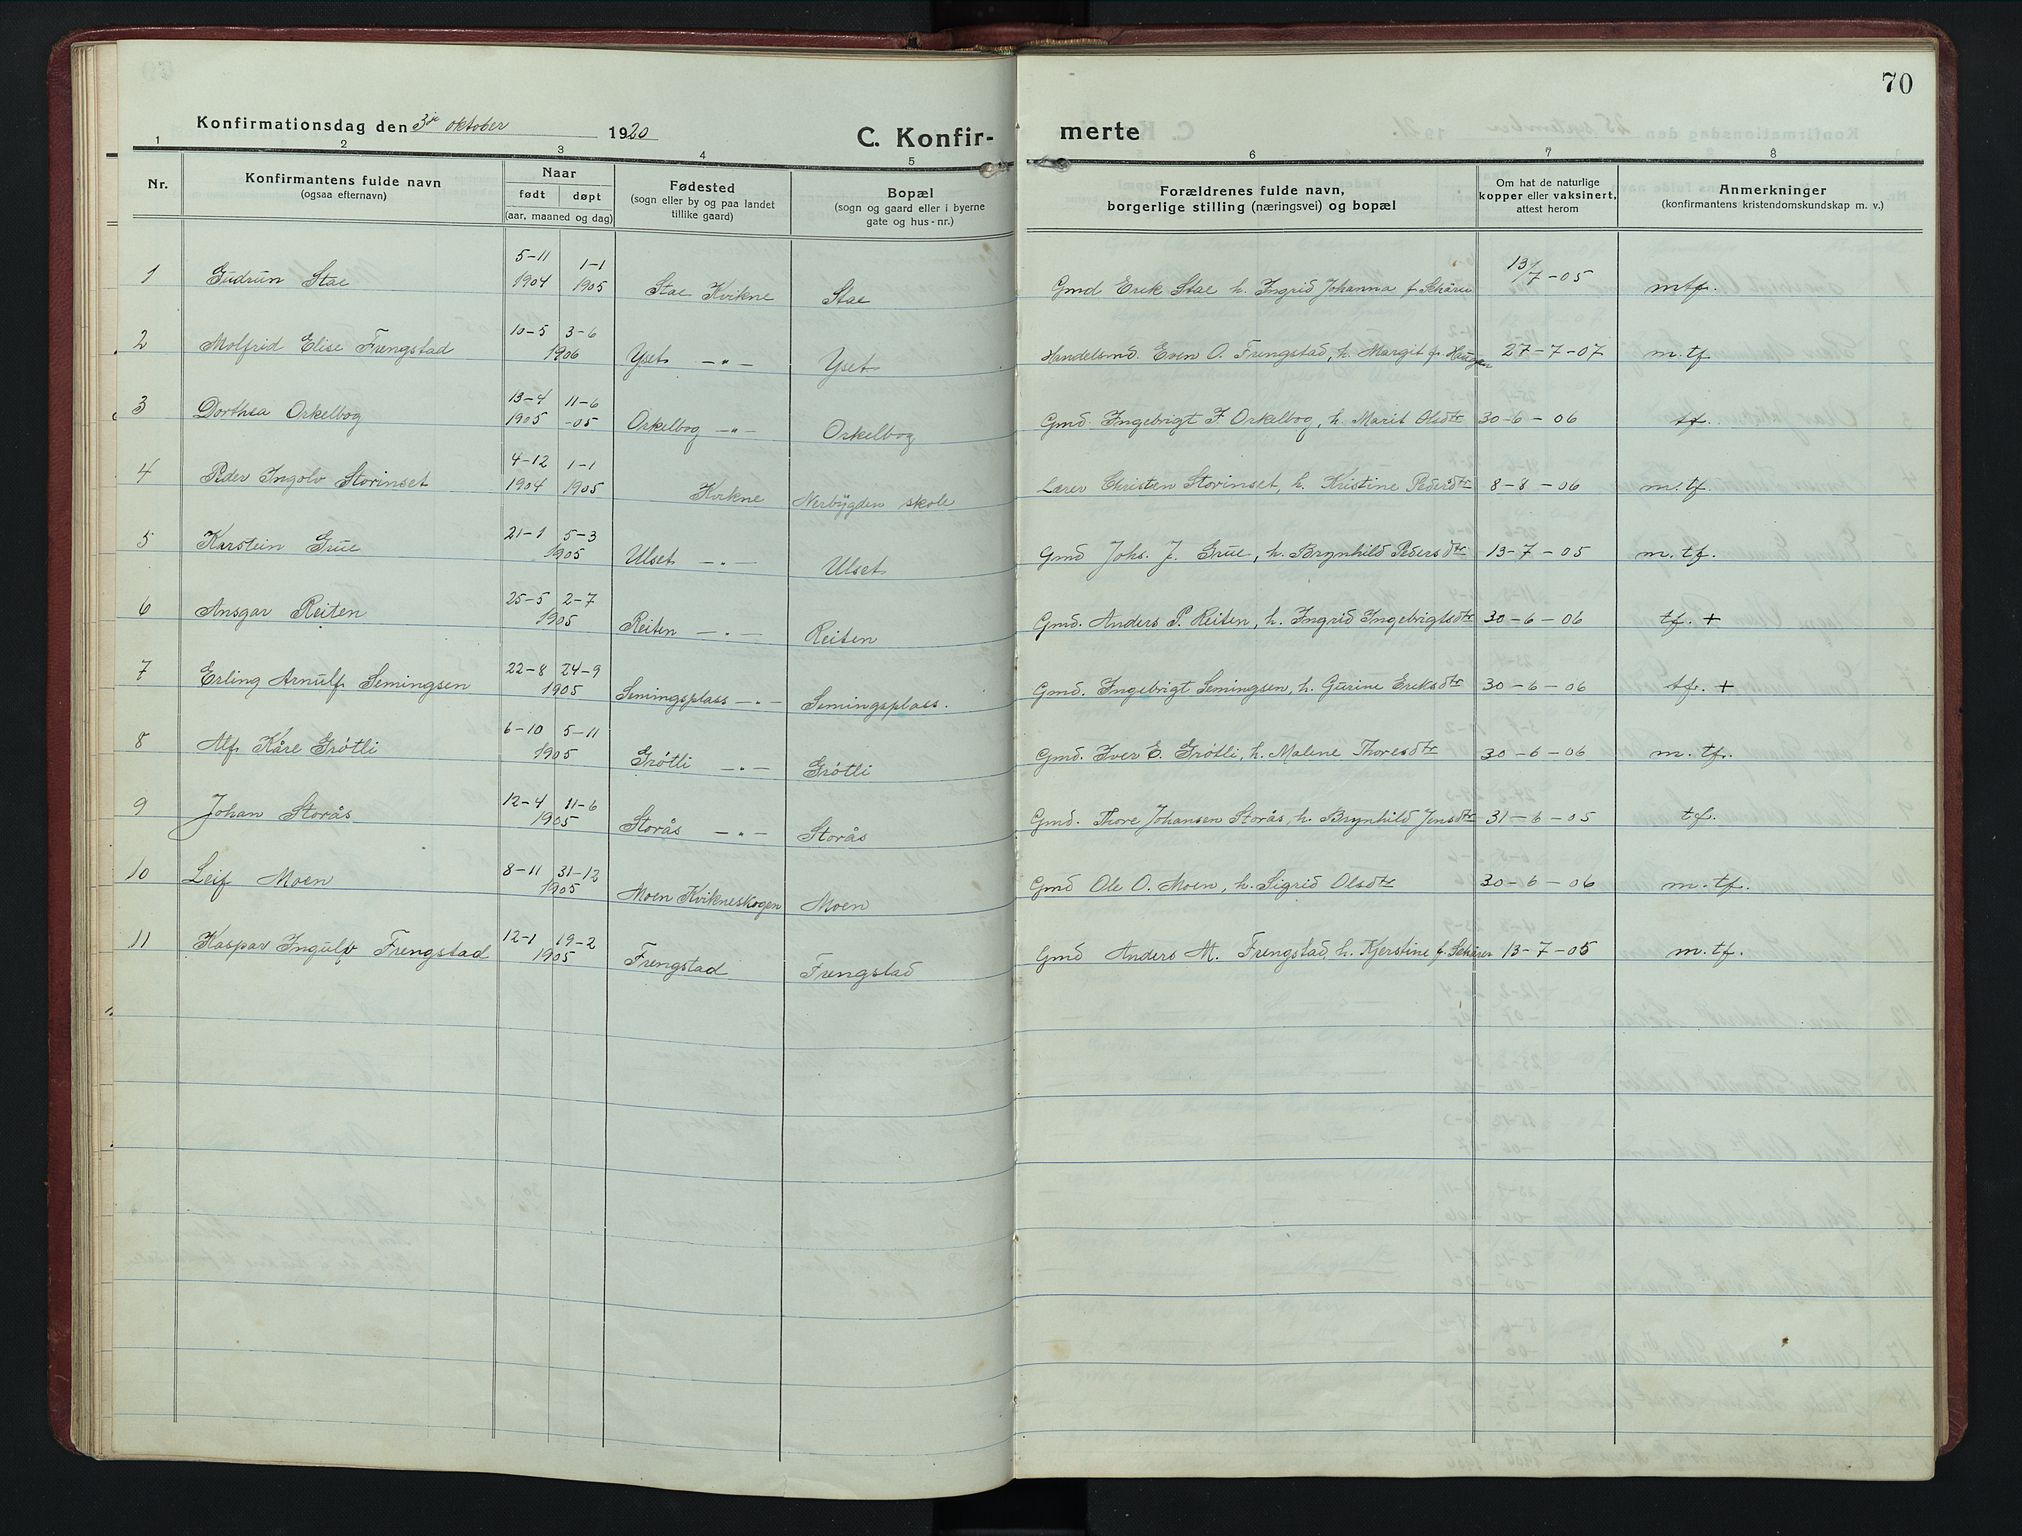 70
Konfirmationsdag den 3die oktober 1920
C. Konfir- merte
1 2 3 4 5 6 7 8
Nr.
Konfirmantens fulde navn
(ogsaa efternavn)
Naar
født døpt
(aar, maaned og dag)
Fødested
(sogn eller by og paa landet
tillike gaard)
Bopæl
(sogn og gaard eller i byerne
gate og hus-nr.)
Forældrenes fulde navn,
borgerlige stilling (næringsvei) og bopæl
Om hat de naturlige
kopper eller vaksinert,
attest herom
Anmerkninger
(konfirmantens kristendomskundskap m. v.)
5-11 1-1 13/7-05
1 Gudrun Stae 1904 1905 Stae Kvikne Stae Gmd Erik Stae h. Ingrid Johanna f. Schärer mtf.
10-5 3-6
2 Molfrid Elise Frengstad 1906 Yset -"- Yset Handelsmd. Even O. Frengstad, h. Margit f. Haugen 27-7-07 m.tf
13-4 11-6
3 Dorthea Orkelbog 1905 -05 Orkelbog -"- Orkelbog Gmd. Ingebrigt J. Orkelbog, h. Marit Olsdtr 30-6-06 tf.
4-12 1-1
4 Peder Ingolv Storinset 1904 1905 Kvikne Nerbygden skole Lærer Christen Storinset, h. Kristine Pedersdtr 8-8-06 m.tf.
21-1 5-3
5 Karstein Grue 1905 Ulset -"- Ulset Gmd Johs. J. Grue, h. Brynhild Pedersdtr 13-7-05 m.tf.
25-5 2-7
6 Ansgar Reiten 1905 Reiten -"- Reiten Gmd. Anders P. Reiten, h. Ingrid Ingebrigtsdtr 30-6-06 tf. +
22-8 24-9
7 Erling Arnulf Semingsen 1905 Semingsplass -"- Semingsplass. Gmd. Ingebrigt Semingsen, h. Gurine Eriksdtr 30-6-06 tf. +
6-10 5-11
8 Alf Kåre Grötli 1905 Grötli -"- Grötli Gmd. Iver E. Grötli, h. Malene Thoresdtr 30-6-06 m.tf.
12-4 11-6
9 Johan Storås 1905 Storås -"- Storås Gmd. Thore Johansen Storås, h. Brynhild Jensdtr 31-6-05 tf.
8-11 31-12
10 Leif Moen 1905 Moen Kvikneskogen Moen Gmd Ole O. Moen, h. Sigrid Olsdtr 30-6-06 m.tf.
12-1 19-2
11 Kaspar Ingulv Frengstad 1905 Frengstad Frengstad Gmd Anders M. Frengstad, h. Kjerstine f. Schärer 13-7-05 m.tf.